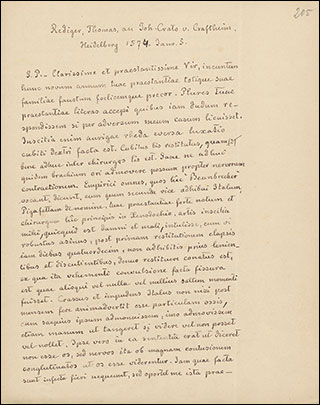 205
Rediger, Thomas, an Joh. Crato v. Craftheim,
Heidelberg 1574. Janr. 5.
S. P. – Clarissime et praestantissime Vir, incuntem
hunc novum annum tuae praestantiae totique suae
familiae faustum foelicemque precor. Plures tuae
praestantiae literas accepi quibus iam dudum re-
spondissem si per adversum meum casum licuisset.
Inscitiâ enim aurigae rheda eversa luxatio
cubiti dextri facta est. Cubitus bis restitutus, quamvis
adhuc inter chirurgos lis est. Sane ne adhuc
quidem brachium ori admovere possum propter nervorum
contractionem. Empirici omnes, quos hic Beinbrecher
vocant, dicunt, cum quem secunda vice adhibui Italum,
Pigafettam de nomine, tuae praestantiae forte notum et
chirurgum hic principis in Xenodochio, artis inscitia
mihi, quicquid est damni et mali, intulisse, cum vi
robustus asinus, post primam restitutionem elapsis
iam diebus quatuordecim, non adhibitis prius lenien-
tibus et discutientibus, denuo restituere conatus est,
ex qua ita vehementi convulsione facta fissura
est quae alioqui vel nulla vel nullius saltem momenti
fuisset. Crassus et impudens Italus non nisi post
mensem fere animadvertit esse particulam ossis,
iam saepius ipsum admonuissem, imo admovissem
etiam manum ut tangeret si videre vel non posset
vel nollet. Ipse vero in ea sententia erat ut diceret
non esse os, sed nervos ita ob magnam contusionem
conglutinatos ut os esse viderentur. Iam quae facta
sunt infecta fieri nequeunt, sed oportet me ista prae-